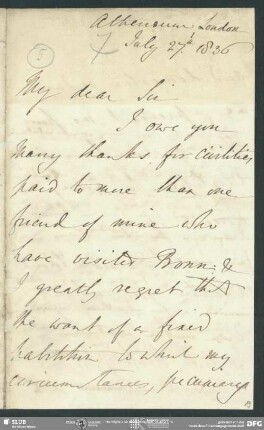 Athenaeum London
July 27th 1836
My dear Sir
I owe you
many thanks for civilities
paid to more than one
friend of mine who
have visited Bonn: &
I greatly regret that
the want of a fixed
habitation to which my
circumstances, pecuniary
SLUB
DFG